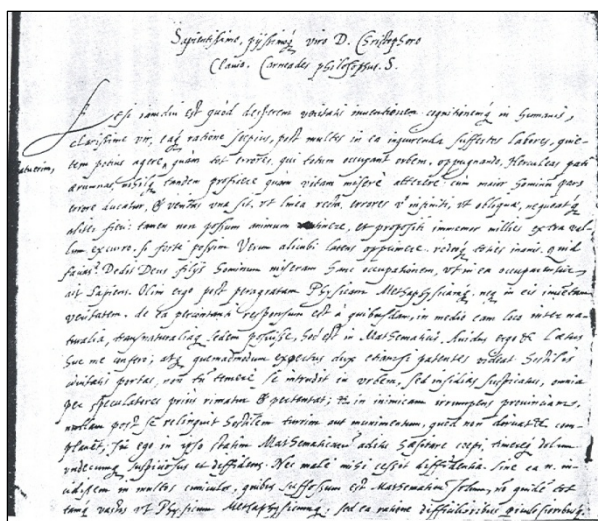 Sapientissimo, pijssimoq; viro D. Christophoro
Clavio. Carneades philosophus. S.
Etsi iamdiu est quod desperem veritatis inventionem cognitionemq; in humanis,
clarissime vir, eaq; ratione saepius, post multos in ea inquirenda suffectos labores, quie-
tem potius agere, quam tot errores, qui totum occupant orbem, oppugnando, Herculeas pati
statuerim,
aerumnas nihilq; tandem proficere quam vitam miserè atterere: cum maior hominum pars
errore ducatur, & veritas una sit, vt linea recta, errores v infiniti, vt obliquae, nequeatq;
aliter fieri: tamen non possum animum continere, et propositi immemor millies extra vel-
lum excurro, si forte possim Verum alicubi latens opprimere. redeoq; toties inanis. quid
faciam? Dedit Deus filijs hominum miseram hanc occupationem, vt in ea occuparentur
ait Sapiens. Olim ergo post peragratam Physicam Metaphysicamq; neq; in eis inventam
veritatem. de ea percontanti responsum est à quibusdam, in medio eam loco inter na-
turalia, transnaturaliaq; sedem posuisse, hoc est in Mathematicis. Avidus ergo & Laetus
huc me confero, atq; quemadmodum expertus dux etiamsi patentes videat hostiles
civitatis portas, non tñ temerè se intrudit in urbem, sed insidias suspicatus, omnia
per speculatores prius rimatur & pertentat; & in inimicam irrumpens provinciam,
nullam post se relinquit hostilem turrim aut munimentum, quod non diruat & com-
planet, sic ego in ipso statim Mathematicar aditu haesitare coepi, timeoq; dolum
undecunq; suspiciosus et diffidens. Nec malè mihi cessit diffidentia. Sine ea n. in-
cidissem in multos cuniculos, quibus suffossum est Mathematicum solum, nõ quidē tot
tamq; vastos vt Physicum Metaphysicumq; sed ea ratione difficilioribus